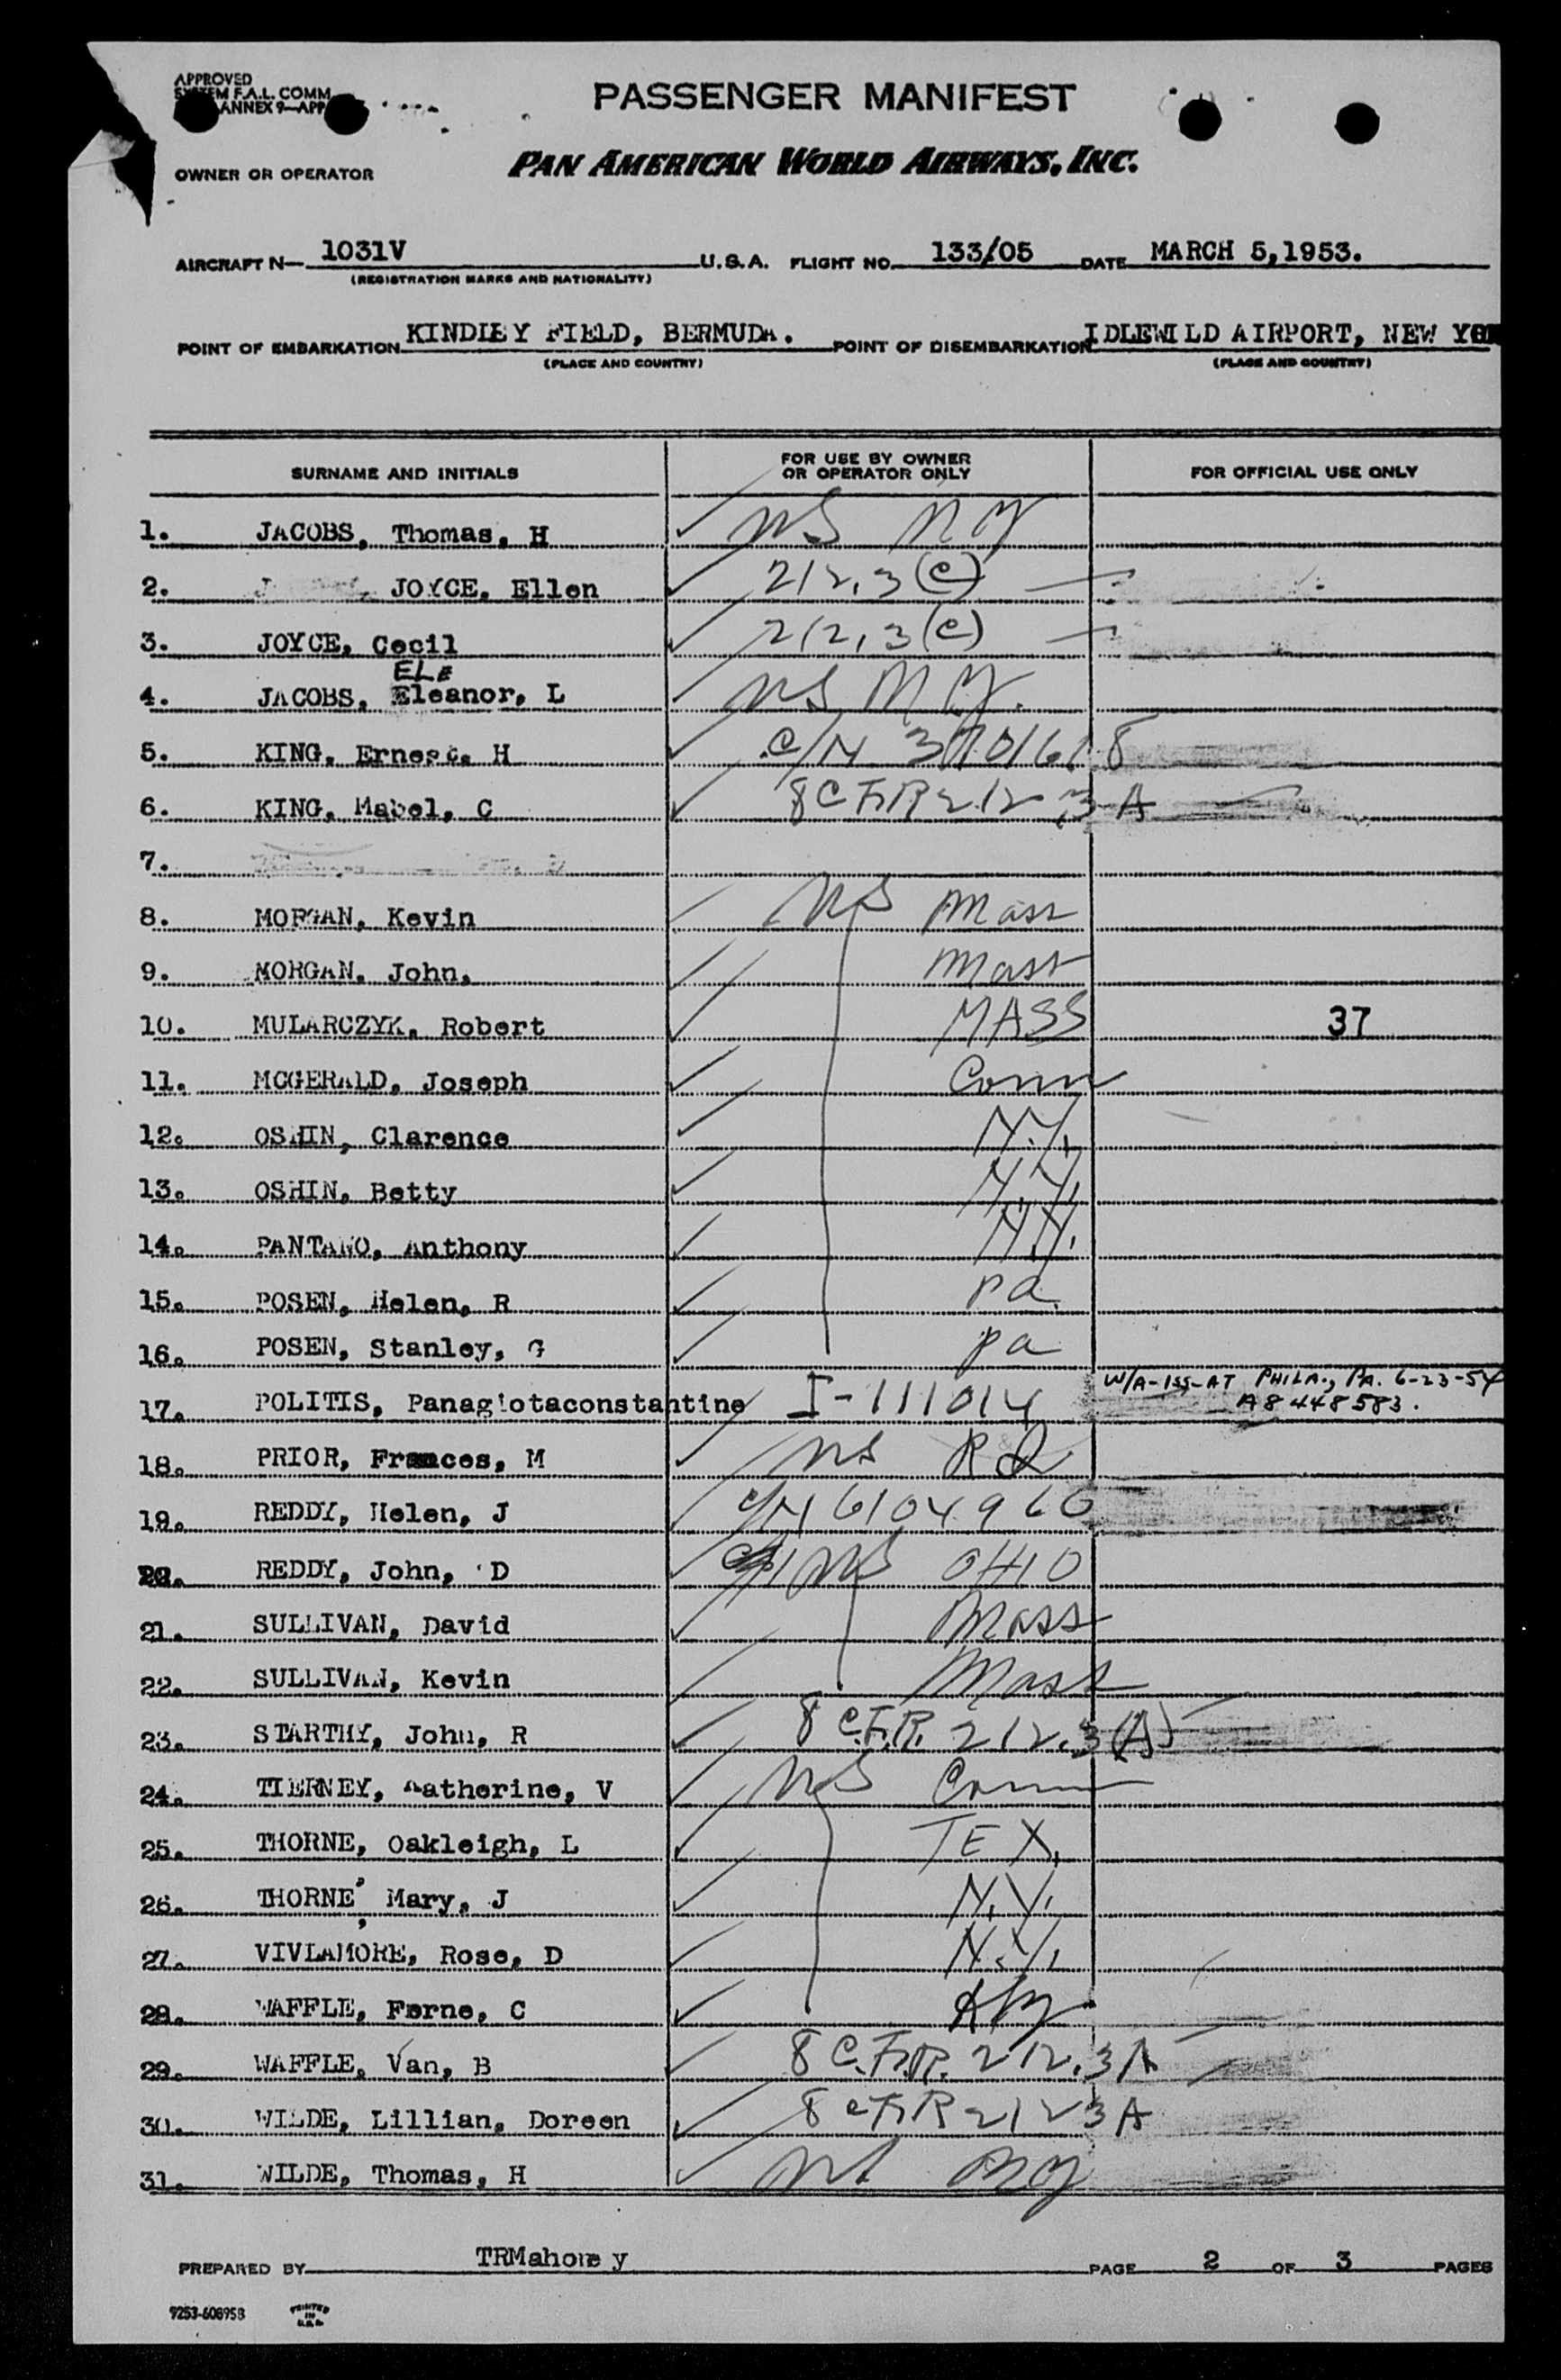 APPROVED
SYSTEM F.A.L. COMM
ANNEX 9—APP
PASSENGER MANIFEST
OWNER OR OPERATOR PAN AMERICAN WORLD AIRWAYS, INC.
AIRCRAFT N— 1031V U.S.A. FLIGHT NO. 133/05 DATE MARCH 5,1953.
(REGISTRATION MARKS AND NATIONALITY)
POINT OF EMBARKATION KINDLEY FIELD, BERMUDA. POINT OF DISEMBARKATION IDLEWILD AIRPORT, NEW YORK
(PLACE AND COUNTRY) (PLACE AND COUNTRY)
SURNAME AND INITIALS FOR USE BY OWNER OR OPERATOR ONLY FOR OFFICIAL USE ONLY
1. JACOBS, Thomas, H US NY
2. JOYCE, Ellen 212.3(C)
3. JOYCE, Cecil 212.3(C)
ELE
4. JACOBS, Eleanor, L US NY.
5. KING, Ernest, H C/N 3701618
6. KING, Mabel, C 8CFR 212.3 A
7.
8. MORGAN, Kevin US Mass
9. MORGAN, John, Mass
10. MULARCZYK, Robert MASS 37
11. MCGERALD, Joseph Conn
12. OSHIN, Clarence N.Y.
13. OSHIN, Betty N.Y.
14. PANTANO, Anthony N.Y.
15. POSEN, Helen, R Pa.
16. POSEN, Stanley, G Pa
17. POLITIS, Panagiotaconstantine I-111014 W/A-ISS-AT PHILA., PA. 6-23-54
A8 448 583.
18. PRIOR, Frances, M US R I
19. REDDY, Helen, J C/N 6104960
20. REDDY, John, D US OHIO
21. SULLIVAN, David Mass
22. SULLIVAN, Kevin Mass
23. STARTHY, John, R 8 C.F.R. 212.3(A)
24. TIERNEY, Katherine, V US Conn
25. THORNE, Oakleigh, L TEX.
26. THORNE, Mary, J N.Y.
27. VIVLAMORE, Rose, D N.Y.
28. WAFFLE, Ferne, C Ky
29. WAFFLE, Van, B 8 C.F.R. 212.3A
30. WILDE, Lillian, Doreen 8 CFR 212 3 A
31. WILDE, Thomas, H US NY
PREPARED BY TRMahoney PAGE 2 OF 3 PAGES
9253-608958 PRINTED IN U.S.A.